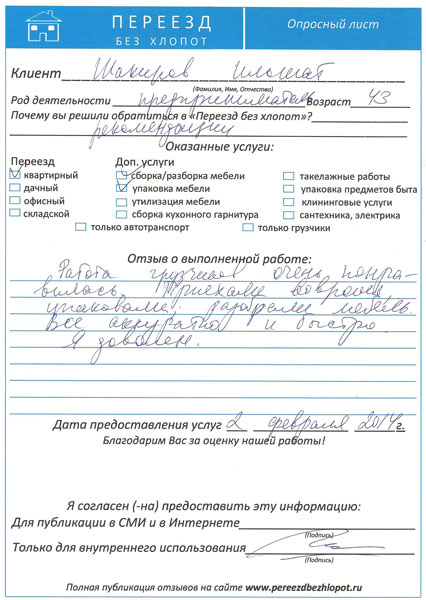 ПЕРЕЕЗД
БЕЗ ХЛОПОТ
Опросный лист
Клиент Шакиров Ильшат
(Фамилия, Имя, Отчество)
Род деятельности предприниматель Возраст 43
Почему вы решили обратиться в «Переезд без хлопот»?
рекомендации
Оказанные услуги:
Переезд Доп. услуги
квартирный сборка/разборка мебели такелажные работы
дачный упаковка мебели упаковка предметов быта
офисный утилизация мебели клининговые услуги
складской сборка кухонного гарнитура сантехника, электрика
только автотранспорт только грузчики
Отзыв о выполненной работе:
Работа грузчиков очень понра-
вилась. Приехали вовремя,
упаковали, разобрали мебель.
Все аккуратно и быстро.
Я доволен.
Дата предоставления услуг 2 февраля 2014 г.
Благодарим Вас за оценку нашей работы!
Я согласен (-на) предоставить эту информацию:
Для публикации в СМИ и в Интернете
(Подпись)
Только для внутреннего использования
(Подпись)
Полная публикация отзывов на сайте www.pereezdbezhlopot.ru